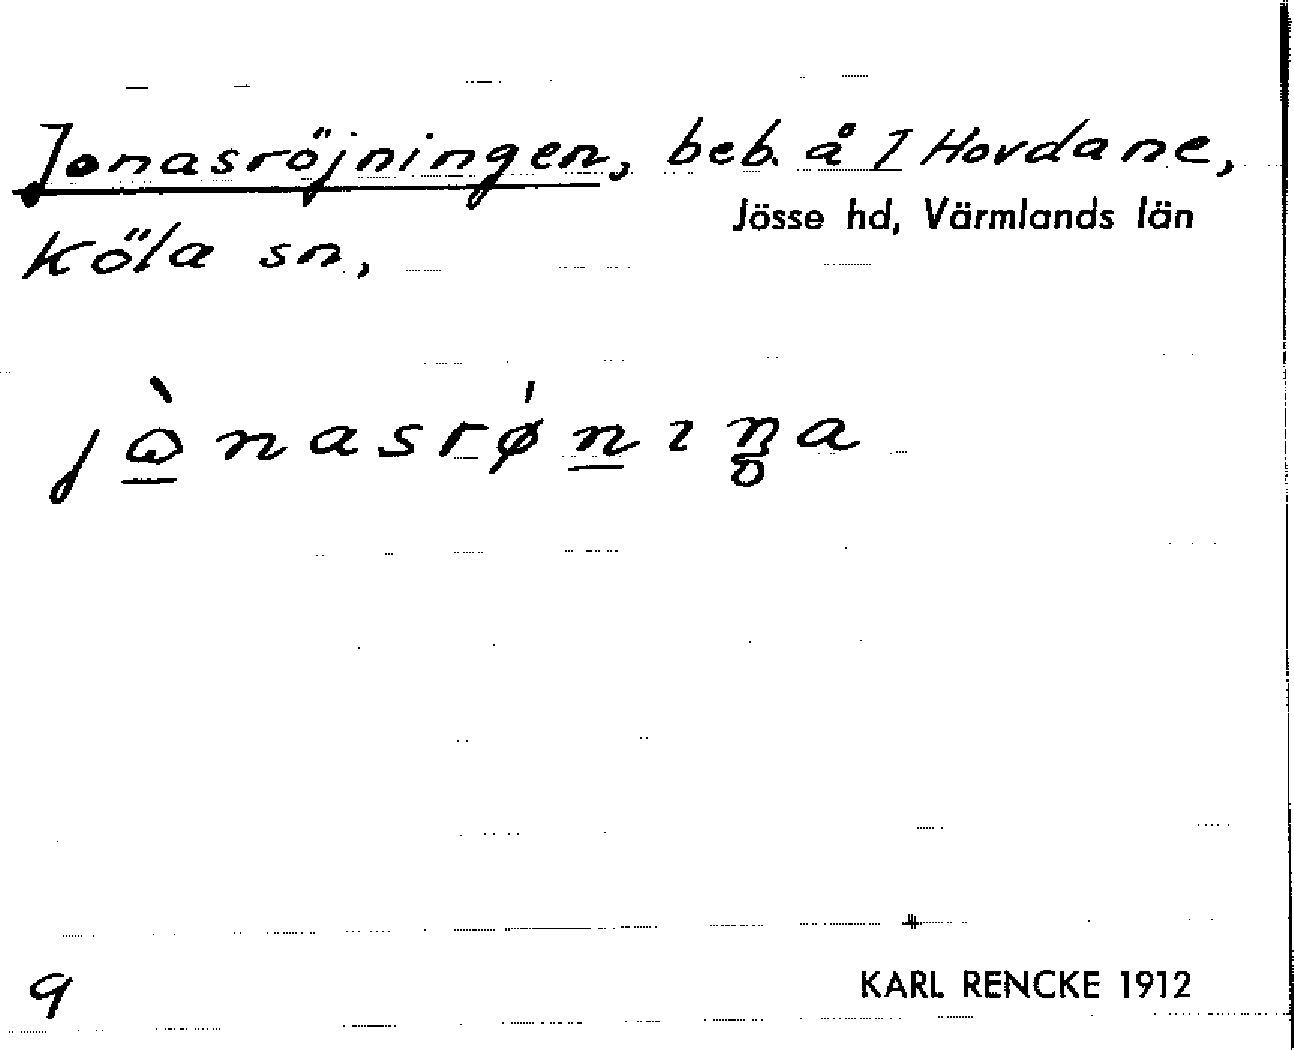 Jonasröjningen, beb. å I Hovdane,
Jösse hd, Värmlands län
Köla sn,
9
KARL RENCKE 1912